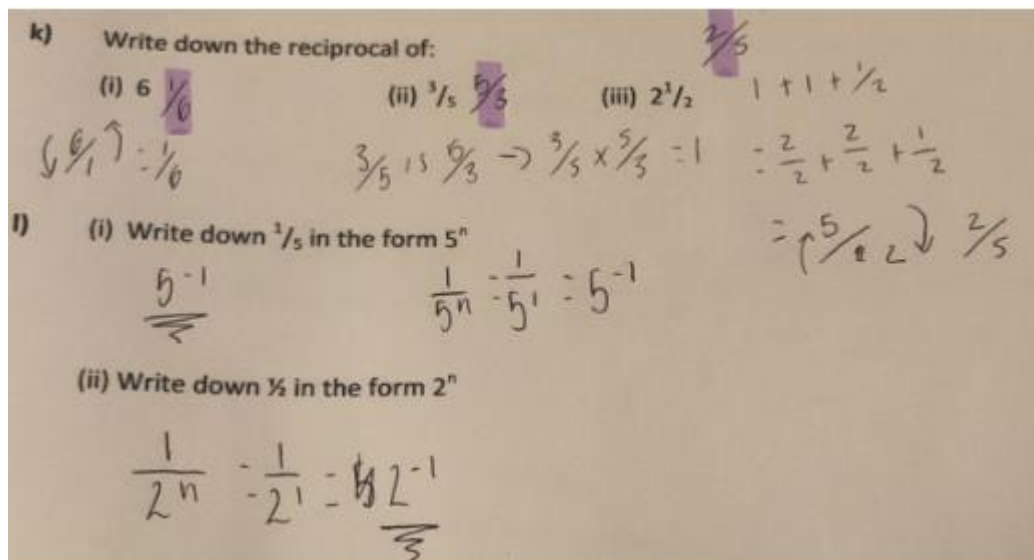 k) Write down the reciprocal of: 2/5
(i) 6 1/6 (ii) 3/5 5/3 (iii) 2 1/2 1 + 1 + 1/2
6/1 = 1/6 3/5 is 5/3 → 3/5 x 5/3 = 1 = 2/2 + 2/2 + 1/2
= 5/2 2/5
l) (i) Write down 1/5 in the form 5ⁿ
5⁻¹ 1/5ⁿ = 1/5¹ = 5⁻¹
(ii) Write down ½ in the form 2ⁿ
1/2ⁿ = 1/2¹ = 2⁻¹